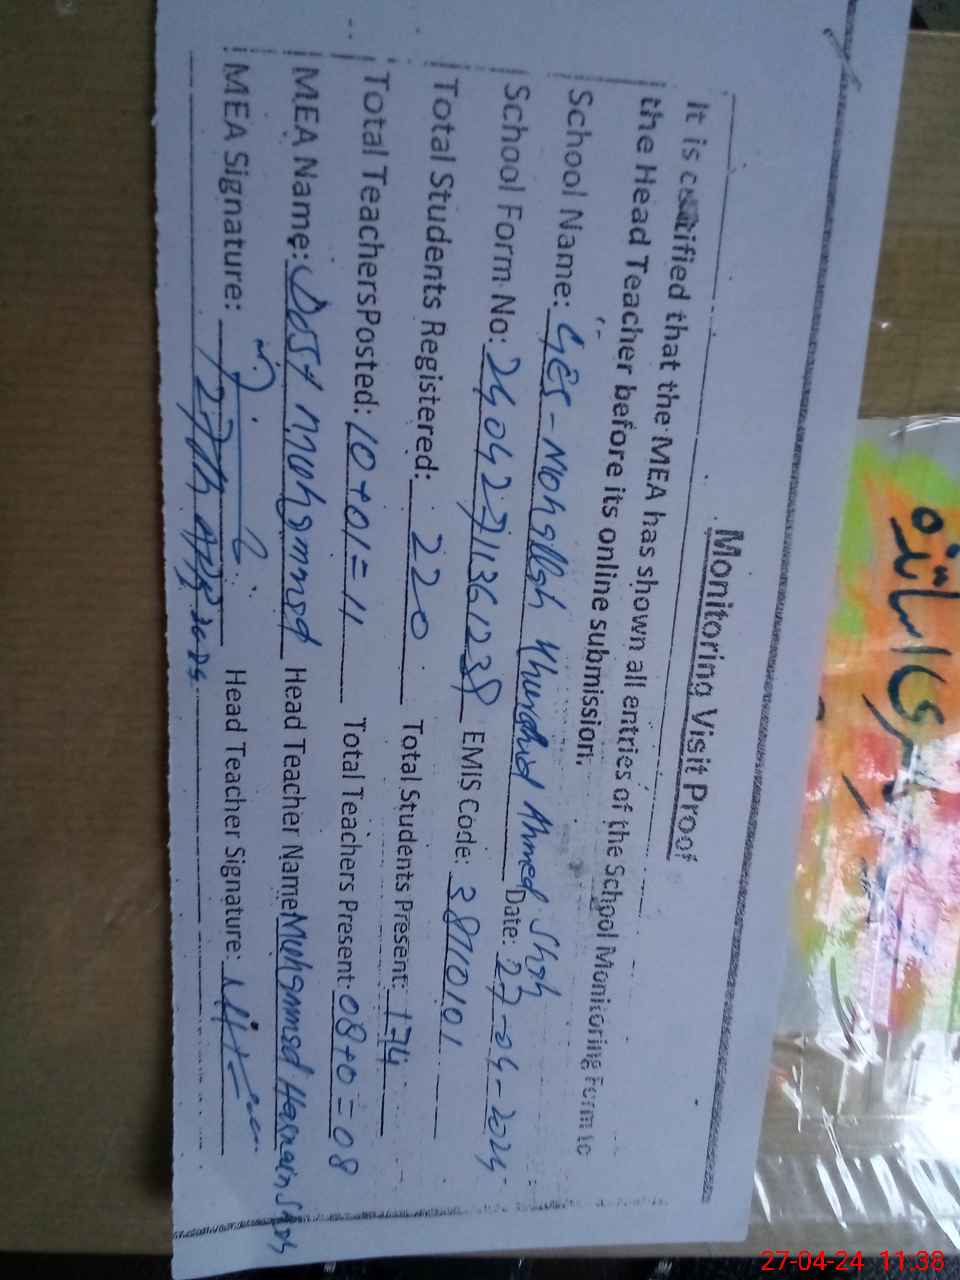 Monitoring Visit Proof
It is certified that the MEA has shown all entries of the School Monitoring Form to
the Head Teacher before its online submission.
School Name: GES - Mohsllsh Khurshid Ahmed Shah Date: 27-04-2024
School Form No: EMIS Code: 38710101
Total Students Registered: 220 Total Students Present: 174
Total TeachersPosted: 10+01=11 Total Teachers Present: 08+0=08
MEA Name: Dost Muhammad Head Teacher Name Muhammad Hasnain Shah
MEA Signature: Head Teacher Signature:
27th
اساتذہ
27-04-24 11:38